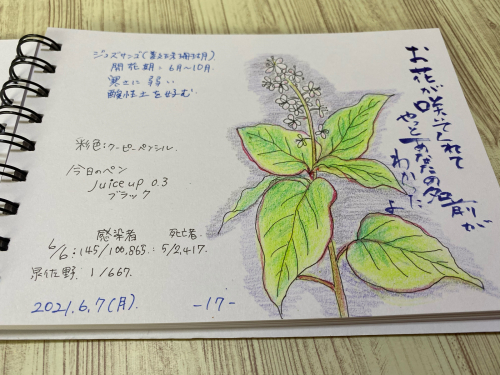 ジュズサンゴ(数珠珊瑚)
開花期:6月〜10月
寒さに弱い
酸性土を好む
お花が咲いてくれて
やっとあなたの名前が
わかったよ
彩色:クーピーペンシル
今日のペン
Juice up 0.3
ブラック
感染者 死亡者
6/6:145/100,865.:5/2,417.
泉佐野 1/667.
2021.6.7(月)
-17-